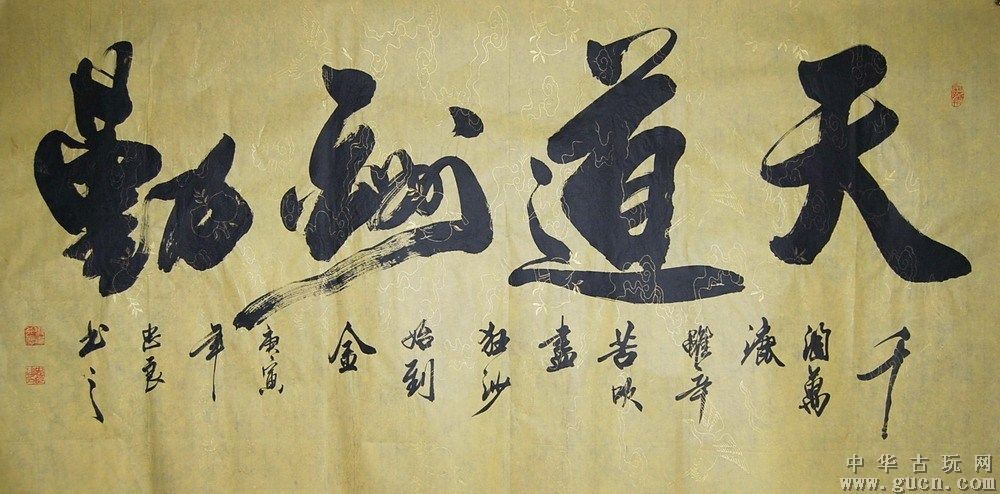 天道酬勤
千淘萬漉雖辛苦吹盡狂沙始到金
庚寅年忠良书之
中华古玩网
www.gucn.com